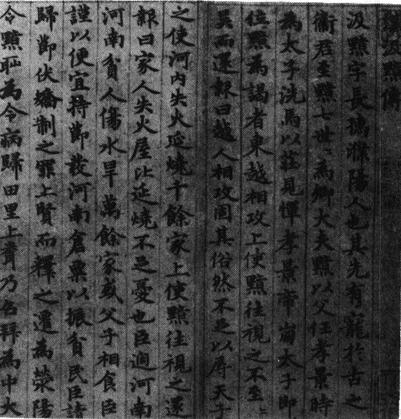 漢汲黯傳
汲黯字長孺濮陽人也其先有寵於古之
衛君至黯七世〻為卿大夫黯以父任孝景時
為太子洗馬以莊見憚孝景帝崩太子即
位黯為謁者東越相攻上使黯往視之不至
吳而還報曰越人相攻固其俗然不足以辱天子
之使河內失火延燒千餘家上使黯往視之還
報曰家人失火屋比延燒不足憂也臣過河南
河南貧人傷水旱萬餘家或父子相食臣
謹以便宜持節發河南倉粟以振貧民臣請
歸節伏矯制之罪上賢而釋之遷為滎陽
令黯恥為令病歸田里上聞乃召拜為中大